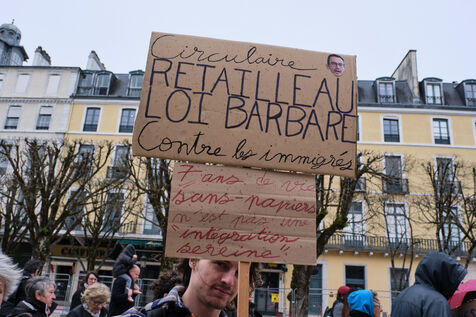 Circulaire
RETAILLEAU
LOI BARBARE
Contre les immigrés
7 ans de vie
sans-papiers
n'est pas une
"intégration"
sereine"